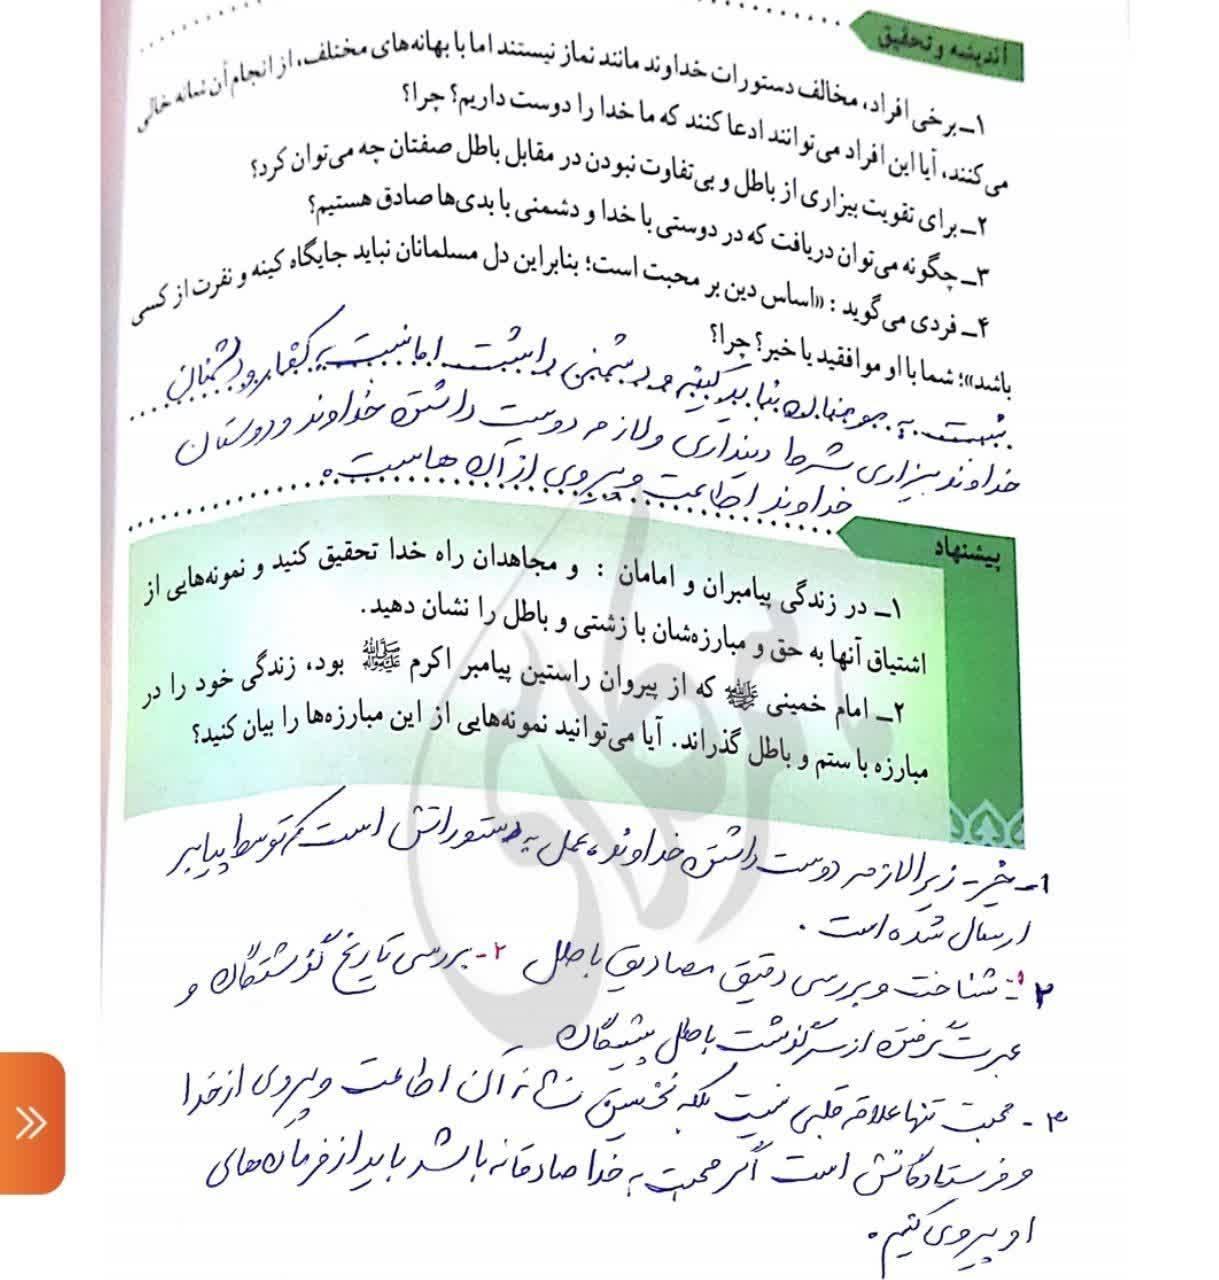 اندیشه و تحقیق
۱ـ برخی افراد، مخالف دستورات خداوند مانند نماز نیستند اما با بهانه‌های مختلف، از انجام آن شانه خالی
می‌کنند، آیا این افراد می‌توانند ادعا کنند که ما خدا را دوست داریم؟ چرا؟
۲ـ برای تقویت بیزاری از باطل و بی‌تفاوت نبودن در مقابل باطل صفتان چه می‌توان کرد؟
۳ـ چگونه می‌توان دریافت که در دوستی با خدا و دشمنی با بدی‌ها صادق هستیم؟
۴ـ فردی می‌گوید : «اساس دین بر محبت است؛ بنابراین دل مسلمانان نباید جایگاه کینه و نفرت از کسی
باشد»؛ شما با او موافقید یا خیر؟ چرا؟
نسبت به مومنان نباید کینه و دشمنی داشت اما نسبت به کفار و دشمنان
خداوند بیزاری شرط دینداری و لازمه دوست داشتن خداوند و دوستان
خداوند اطاعت و پیروی از آن هاست.
پیشنهاد
۱ـ در زندگی پیامبران و امامان : و مجاهدان راه خدا تحقیق کنید و نمونه‌هایی از
اشتیاق آنها به حق و مبارزه‌شان با زشتی و باطل را نشان دهید.
۲ـ امام خمینی که از پیروان راستین پیامبر اکرم ﷺ بود، زندگی خود را در
مبارزه با ستم و باطل گذراند. آیا می‌توانید نمونه‌هایی از این مبارزه‌ها را بیان کنید؟
۱ـ خیر - زیرا لازمه دوست داشتن خداوند، عمل به دستوراتش است که توسط پیامبر
ارسال شده است.
۲ ۱- شناخت و بررسی دقیق مصادیق باطل ۲- بررسی تاریخ گذشتگان و
عبرت گرفتن از سرگذشت باطل پیشگان
۳- محبت تنها علاقه قلبی نیست بلکه نخستین نشانه آن اطاعت و پیروی از خدا
و فرستادگانش است اگر محبت به خدا صادقانه باشد باید از فرمان‌های
او پیروی کنیم.